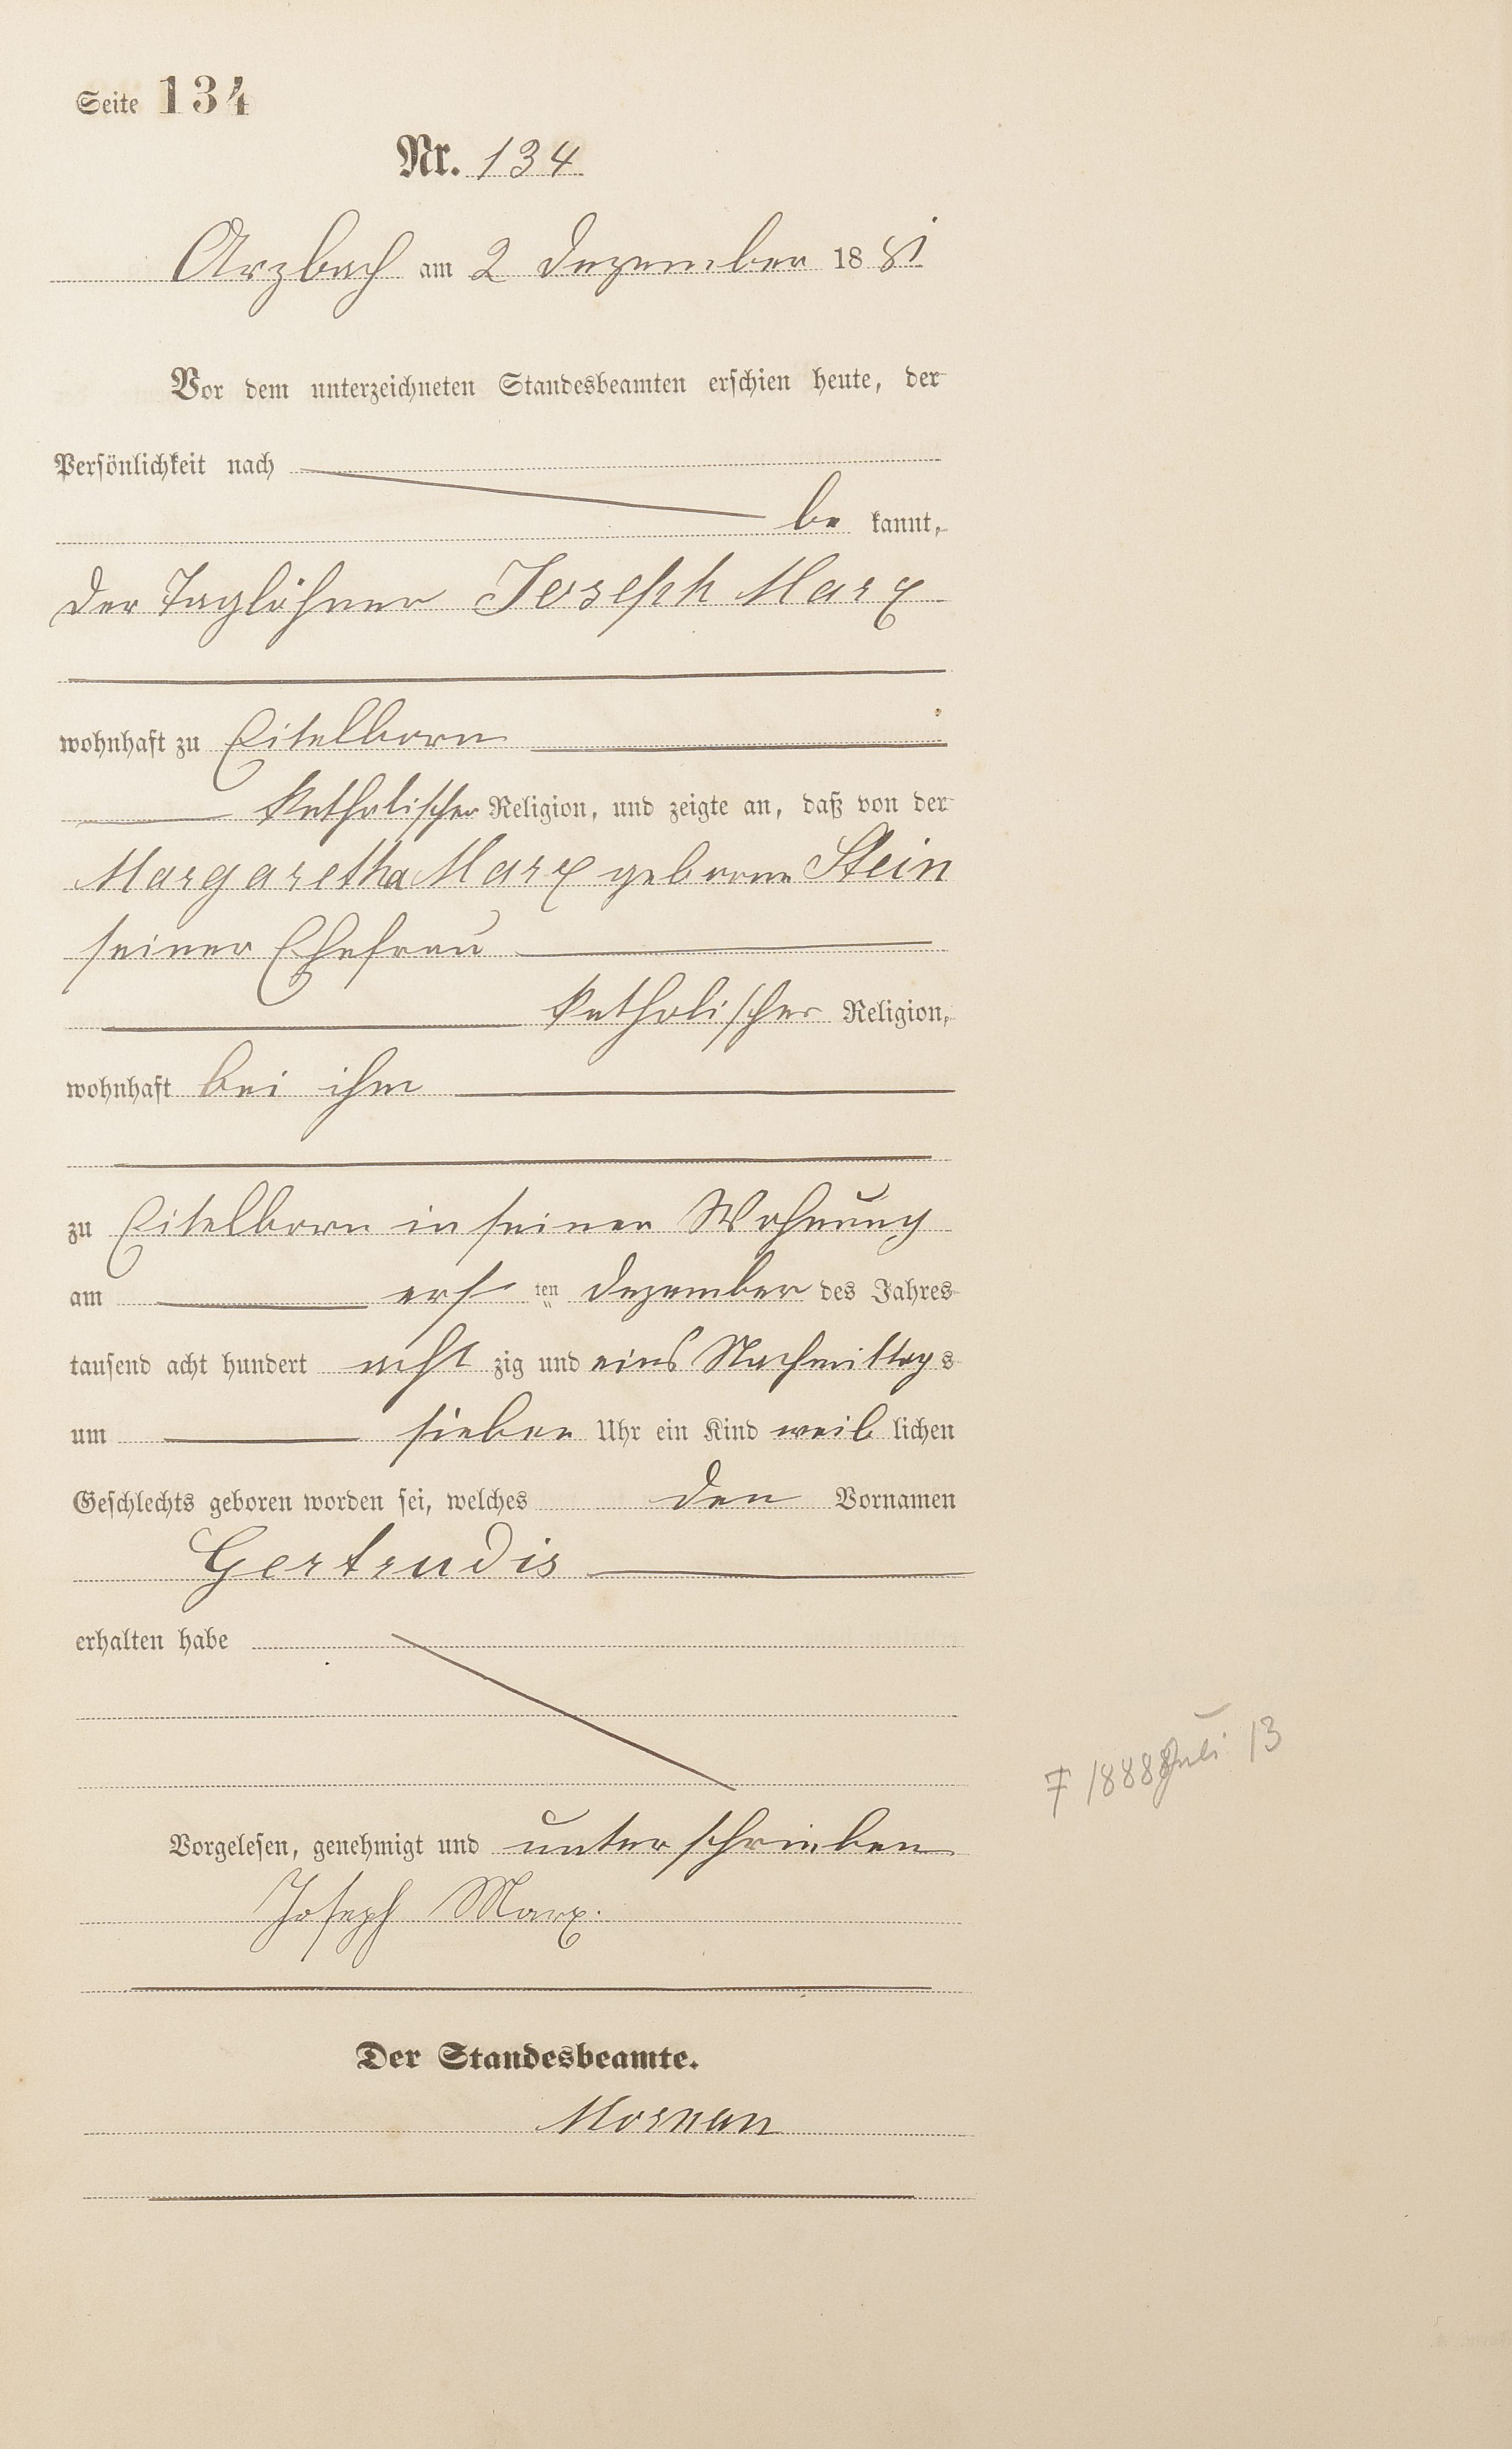 Seite 134
Nr. 134
Arzbach am 2 Dezember 1881
Vor dem unterzeichneten Standesbeamten erschien heute, der
Persönlichkeit nach
be kannt,
der Taglöhner Joseph Marx
wohnhaft zu Eitelborn
katholischer Religion, und zeigte an, daß von der
Margaretha Marx geborne Stein
seiner Ehefrau
katholischer Religion,
wohnhaft bei ihm
zu Eitelborn in seiner Wohnung
am ersten Dezember des Jahres
tausend acht hundert acht zig und eins Nachmittags
um sieben Uhr ein Kind weiblichen
Geschlechts geboren worden sei, welches den Vornamen
Gertrudis
erhalten habe
Vorgelesen, genehmigt und unterschrieben
Joseph Marx.
Der Standesbeamte.